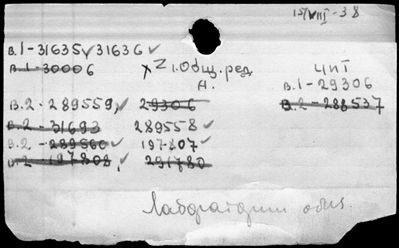 15/VIII-38
в.1-31635, 31636
в.1-30006
Х 21. Общ. ред
А.
ЧИТ
в.1-29306
в.2-289559, 29306
в.2-288537
в.2-31693 289558
в.2-289560 197807
в.2-197808, 291780
Лаборатории